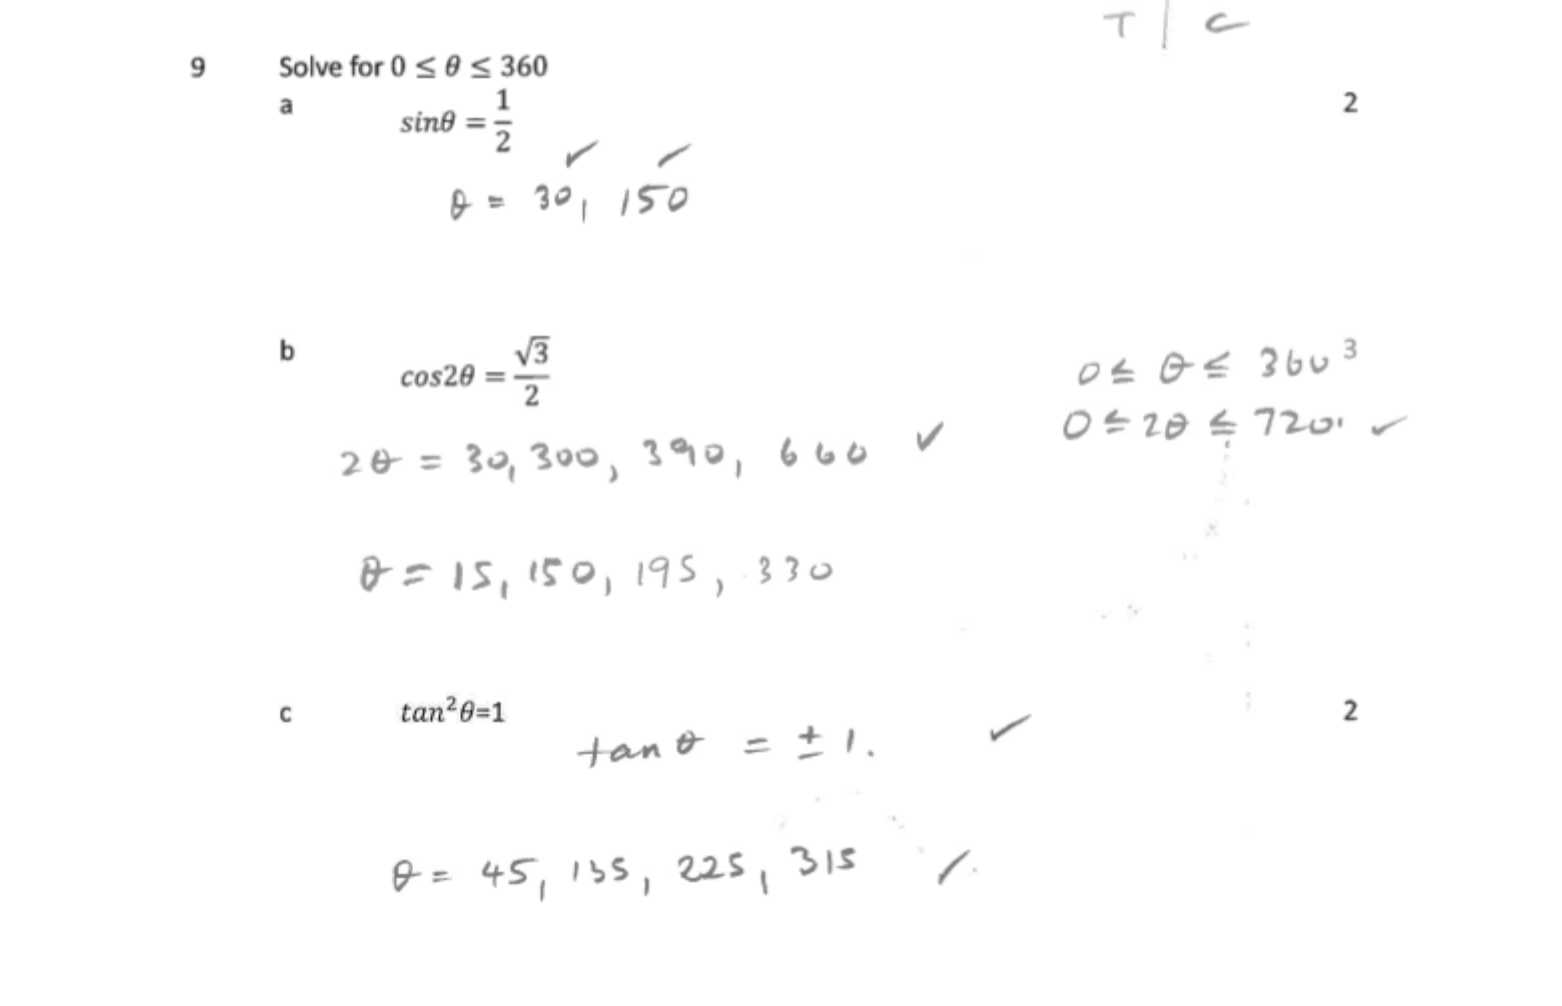 T | C
9 Solve for 0 ≤ θ ≤ 360
a sinθ = 1/2 2
θ = 30, 150
b cos2θ = √3/2 3
0 ≤ θ ≤ 360
0 ≤ 2θ ≤ 720
2θ = 30, 300, 390, 660
θ = 15, 150, 195, 330
c tan²θ=1 2
tan θ = ± 1.
θ = 45, 135, 225, 315